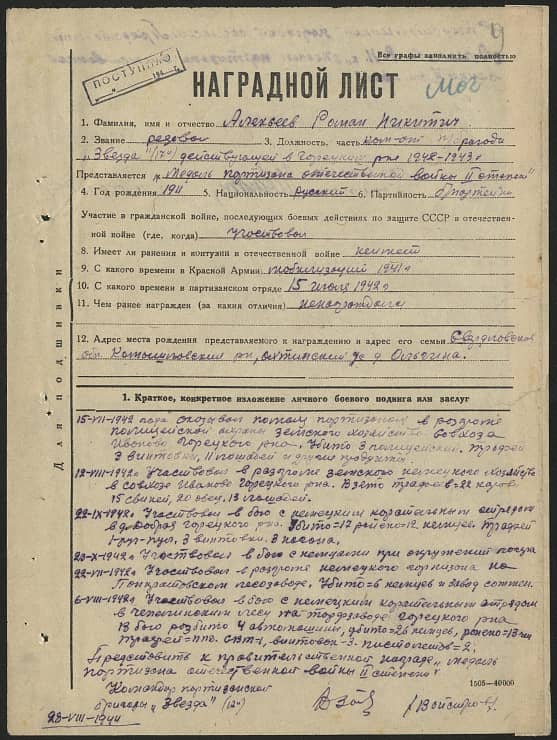 Все графы заполнить полностью
ПОСТУПИЛО
НАГРАДНОЙ ЛИСТ
1. Фамилия, имя и отчество Алексеев Роман Никитич
2. Звание рядовой 3. Должность, часть
„Звезда" (12ч) действующей в Горецком р-не 1942-1943г
Представляется к „Медаль партизана отечественной войны II степени"
4. Год рождения 1911 5. Национальность русский 6. Партийность б/партейн
Участие в гражданской войне, последующих боевых действиях по защите СССР и отечествен-
ной войне (где, когда) участвовал
8. Имеет ли ранения и контузии в отечественной войне неимеет
9. С какого времени в Красной Армии мобилизации 1941г
10. С какого времени в партизанском отряде 15 июля 1942г
11. Чем ранее награжден (за какия отличия) ненаграждался
12. Адрес места рождения представляемого к награждению и адрес его семьи Свердловской
обл. р-н, д.
Для подшивки
1. Краткое, конкретное изложение личного боевого подвига или заслуг
15-VII-1942 года оказывал помощь партизанам в разгроме
полицейской охраны земского хозяйства совхоза
Иваново Горецкого р-на. Убито 3 полицейских. трофей
3 винтовки, 11 лошадей и другие продукты.
12-VIII-1942г Участвовал в разгроме земского немецкого хозяйства
в совхозе Иваново Горецкого р-на. Взято трофеев = 22 коровы
15 свиней, 20 овец, 13 лошадей.
22-IX-1942г Участвовал в бою с немецким карательным отрядом
в д. Добрая Горецкого р-на. Убито=17 ранено=12 немцев. Трофей
1-руч-пул, 3 винтовки.
20-X-1942г Участвовал в бою с немцами при окружении
22-VII-1942г Участвовал в разгроме немецкого гарнизона на
лесозаводе. Убито=6 немцев и завод сожжен.
6-VIII-1942г Участвовал в бою с немецким карательным отрядом
в лесу Горецкого р-на
В бою разбито 4 автомашины, убито=26 немцев, ранено=13
трофей= винтовок-3 пистолетов=2.
Представить к правительственной награде „медаль
партизана отечественной войны II степени"
Командир партизанской
бригады „Звезда" (12ч)
1505—40000
28-VIII-1944